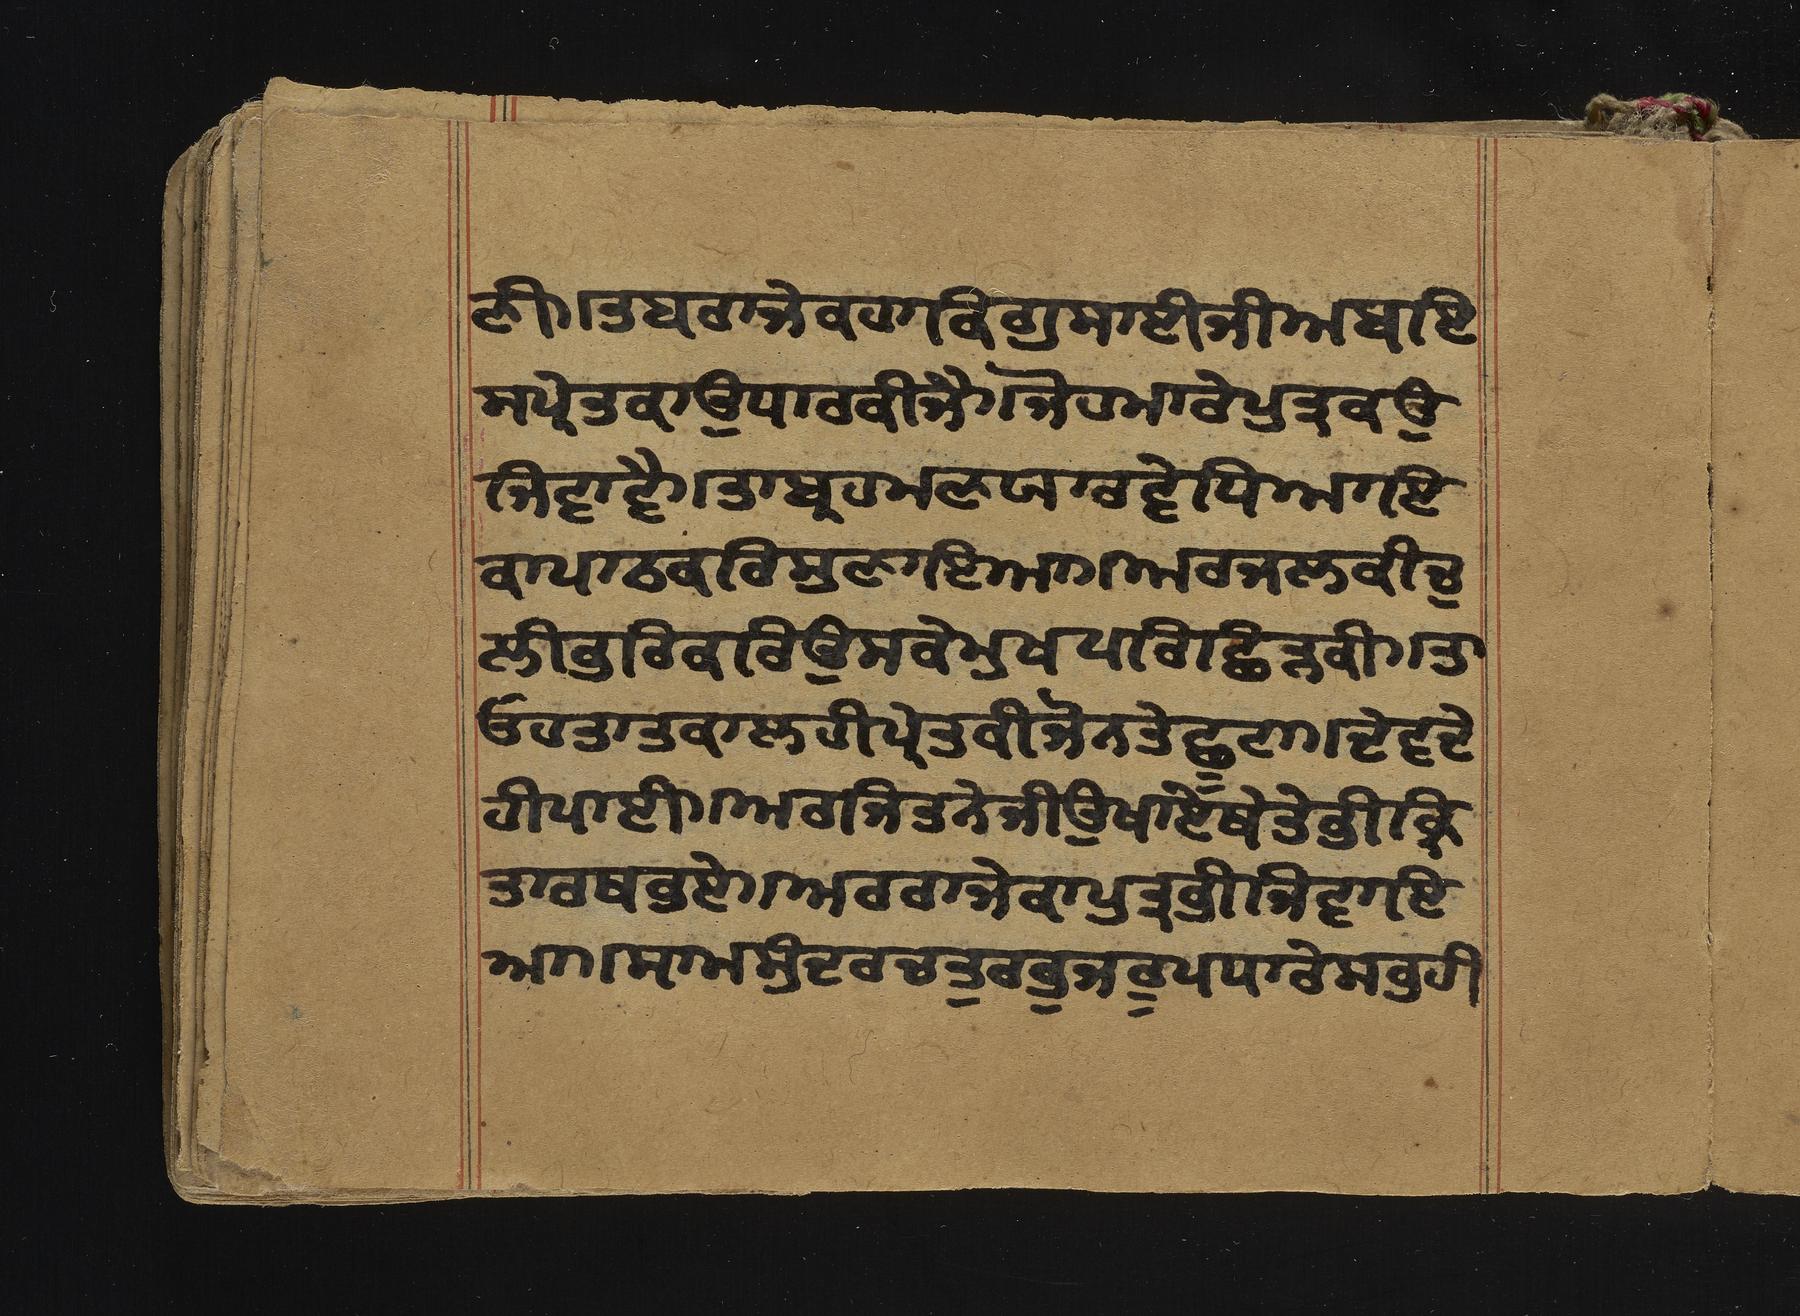 ਣੀ।ਤਬਰਾਜੇਕਹਾਕਿਗੁਸਾਈਜੀਅਬਇ
ਸਪ੍ਰੇਤਕਾਉਧਾਰਕੀਜੈ।ਜੋਹਮਾਰੇਪੁਤ੍ਰਕਉ
ਜਿਵਾਵੈ।ਤਾਬ੍ਰਹਮਣਯਾਰਵੇਧਿਆਇ
ਕਾਪਾਠਕਰਿਸੁਣਾਇਆ।ਅਰਜਲਕੀਚੁ
ਲੀਭੁਰਿਕਰਿਉਸਕੇਮੁਖਪਰਿਛਿੜਕੀ।ਤਾ
ਓਹਤਾਤਕਾਲਹੀਪ੍ਰੇਤਕੀਜੋਨਤੇਛੂਟਾ।ਦੇਵਦੇ
ਹੀਪਾਈ।ਅਰਜਿਤਨੇਜੀਉਖਾਏਥੇਤੇਭੀਕ੍ਰਿ
ਤਾਰਥਭਏ।ਅਰਰਾਜੇਕਾਪੁਤ੍ਰਭੀਜਿਵਾਇ
ਆ।ਸਾਮਸੁੰਦਰਚਤੁਰਭੁਜਰੂਪਧਾਰੇਸਭਹੀ